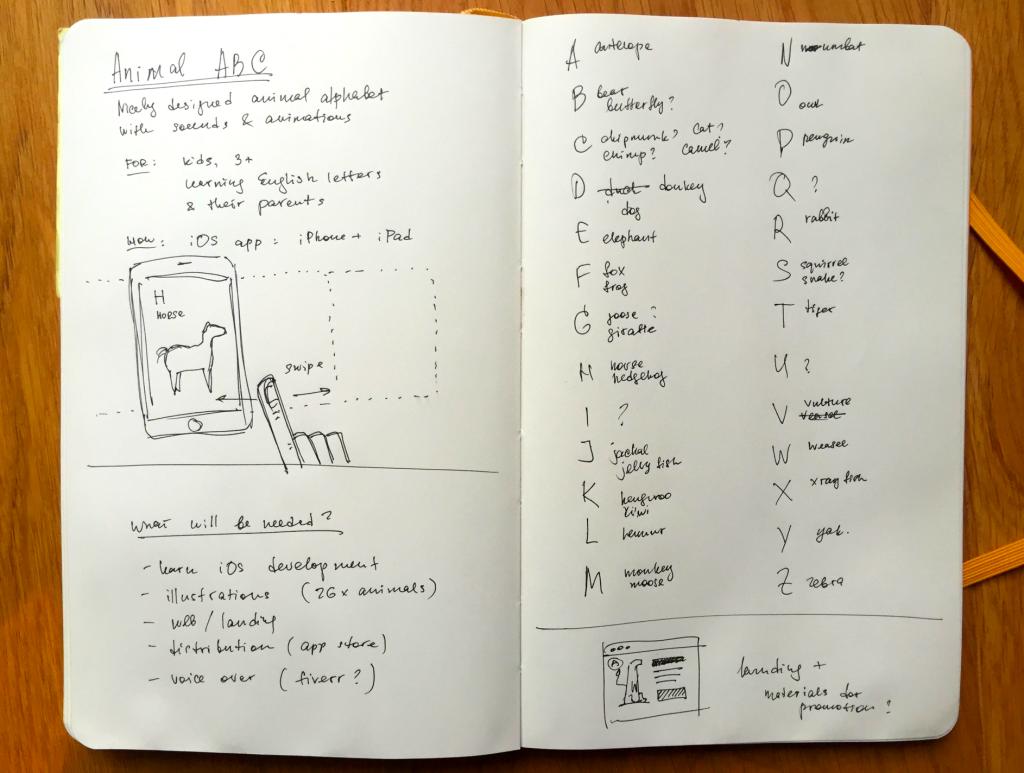 Animal ABC
Nicely designed animal alphabet
with sounds & animations
FOR: kids, 3+
learning English letters
& their parents
HOW: iOS app: iPhone + iPad
H
HORSE
swipe
What will be needed?
- learn iOS development
- illustrations (26x animals)
- web / landing
- distribution (app store)
- voice over (fiverr?)
A antelope
B bear
butterfly?
C chipmunk? cat?
chimp? camel?
D donkey
dog
E elephant
F fox
frog
G goose?
giraffe
H horse
hedgehog
I ?
J jackal
jelly fish
K kenguroo
kiwi
L lemur
M monkey
moose
N numbat
O owl
P penguin
Q ?
R rabbit
S squirrel
snake?
T tiger
U ?
V vulture
weasel
W weasel
X x ray fish
Y yak.
Z zebra
A
W
landing +
materials for
promotion?